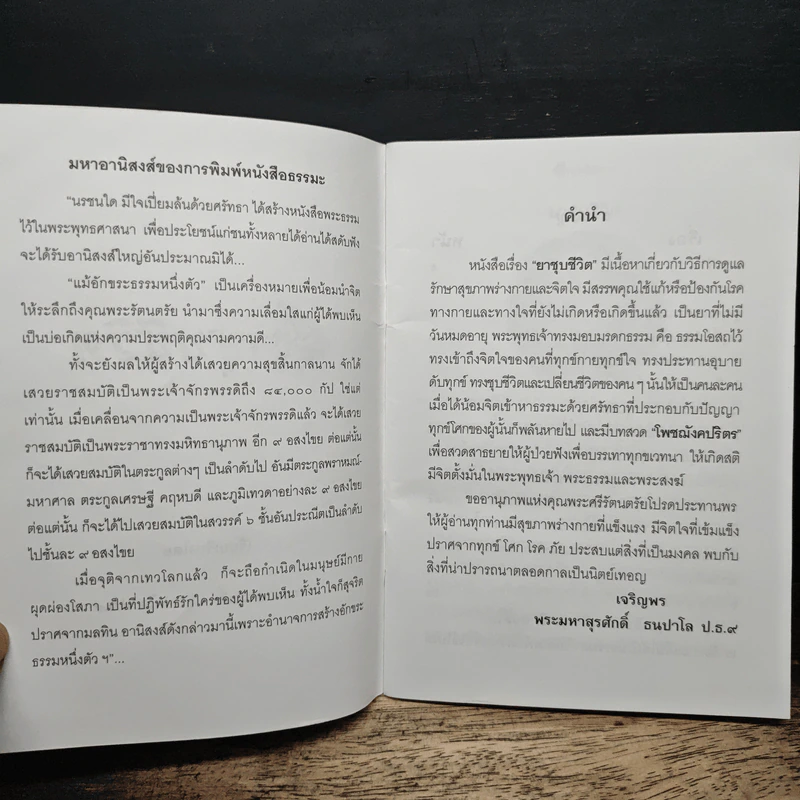 มหาอานิสงส์ของการพิมพ์หนังสือธรรมะ
"นรชนใด มีใจเปี่ยมล้นด้วยศรัทธา ได้สร้างหนังสือพระธรรม
ไว้ในพระพุทธศาสนา เพื่อประโยชน์แก่ชนทั้งหลายได้อ่านได้สดับฟัง
จะได้รับอานิสงส์ใหญ่อันประมาณมิได้...
"แม้อักขระธรรมหนึ่งตัว" เป็นเครื่องหมายเพื่อน้อมนำจิต
ให้ระลึกถึงคุณพระรัตนตรัย นำมาซึ่งความเลื่อมใสแก่ผู้ได้พบเห็น
เป็นบ่อเกิดแห่งความประพฤติคุณงามความดี...
ทั้งจะยังผลให้ผู้สร้างได้เสวยความสุขสิ้นกาลนาน จักได้
เสวยราชสมบัติเป็นพระเจ้าจักรพรรดิถึง ๘๔,๐๐๐ กัป ใช่แต่
เท่านั้น เมื่อเคลื่อนจากความเป็นพระเจ้าจักรพรรดิแล้ว จะได้เสวย
ราชสมบัติเป็นพระราชาทรงมหิทธานุภาพ อีก ๙ อสงไขย ต่อแต่นั้น
ก็จะได้เสวยสมบัติในตระกูลต่างๆ เป็นลำดับไป อันมีตระกูลพราหมณ์-
มหาศาล ตระกูลเศรษฐี คฤหบดี และภูมิเทวดาอย่างละ ๙ อสงไขย
ต่อแต่นั้น ก็จะได้ไปเสวยสมบัติในสวรรค์ ๖ ชั้นอันประณีตเป็นลำดับ
ไปชั้นละ ๙ อสงไขย
เมื่อจุติจากเทวโลกแล้ว ก็จะถือกำเนิดในมนุษย์มีกาย
ผุดผ่องโสภา เป็นที่ปฏิพัทธ์รักใคร่ของผู้ได้พบเห็น ทั้งน้ำใจก็สุจริต
ปราศจากมลทิน อานิสงส์ดังกล่าวมานี้เพราะอำนาจการสร้างอักขระ
ธรรมหนึ่งตัว ฯ"...
คำนำ
หนังสือเรื่อง "ยาชุบชีวิต" มีเนื้อหาเกี่ยวกับวิธีการดูแล
รักษาสุขภาพร่างกายและจิตใจ มีสรรพคุณใช้แก้หรือป้องกันโรค
ทางกายและทางใจที่ยังไม่เกิดหรือเกิดขึ้นแล้ว เป็นยาที่ไม่มี
วันหมดอายุ พระพุทธเจ้าทรงมอบมรดกธรรม คือ ธรรมโอสถไว้
ทรงเข้าถึงจิตใจของคนที่ทุกข์กายทุกข์ใจ ทรงประทานอุบาย
ดับทุกข์ ทรงชุบชีวิตและเปลี่ยนชีวิตของคน ๆ นั้นให้เป็นคนละคน
เมื่อได้น้อมจิตเข้าหาธรรมะด้วยศรัทธาที่ประกอบกับปัญญา
ทุกข์โศกของผู้นั้นก็พลันหายไป และมีบทสวด "โพชฌังคปริตร"
เพื่อสวดสาธยายให้ผู้ป่วยฟังเพื่อบรรเทาทุกขเวทนา ให้เกิดสติ
มีจิตตั้งมั่นในพระพุทธเจ้า พระธรรมและพระสงฆ์
ขออานุภาพแห่งคุณพระศรีรัตนตรัยโปรดประทานพร
ให้ผู้อ่านทุกท่านมีสุขภาพร่างกายที่แข็งแรง มีจิตใจที่เข้มแข็ง
ปราศจากทุกข์ โศก โรค ภัย ประสบแต่สิ่งที่เป็นมงคล พบกับ
สิ่งที่น่าปรารถนาตลอดกาลเป็นนิตย์เทอญ
เจริญพร
พระมหาสุรศักดิ์ ธนปาโล ป.ธ.๙